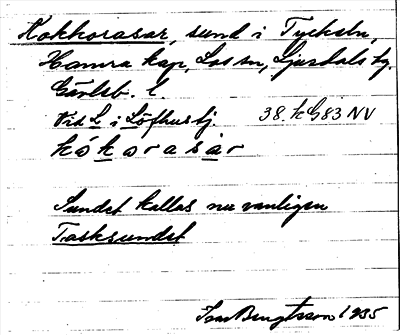 Kokkorasar, sund i Tyckeln,
Hamra kap, Los sn, Ljusdals tg.
Gävleb. l.
Vid L i Löfhustj. 38. kG83 NV
kókorasàr
Sundet kallas nu vanligen
Tasksundet
Jan Bengtsson 1935